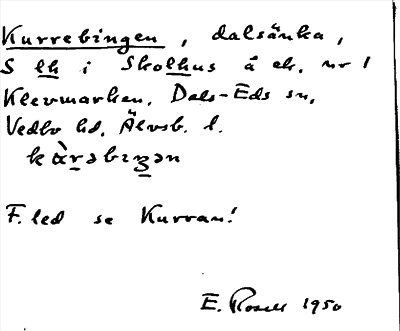 Kurrebingen, dalsänka,
S lh i Skolhus å ek. nr 1
Klevmarken, Dals-Eds sn,
Vedbo hd, Älvsb. l.
kàrəbɩȝən
F. led se Kurran!
E. Rosell 1950